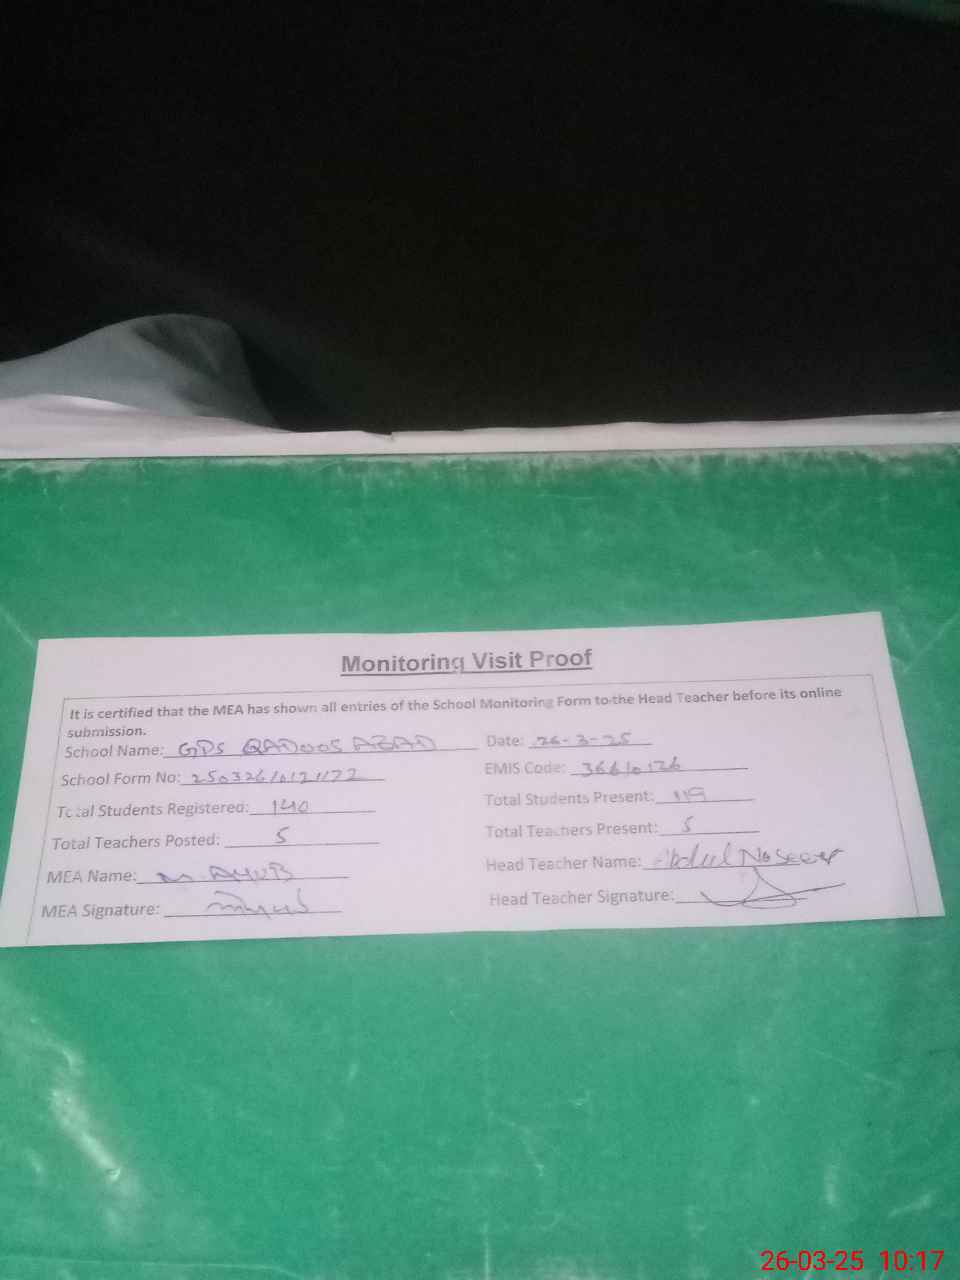 Monitoring Visit Proof
It is certified that the MEA has shown all entries of the School Monitoring Form to the Head Teacher before its online
submission.
School Name: GPS QADOOS ABAD Date: 26-3-25
School Form No: EMIS Code: 36610126
Total Students Registered: 140 Total Students Present: 119
Total Teachers Posted: 5 Total Teachers Present: 5
MEA Name: M. AYUB Head Teacher Name: Abdul Naseer
MEA Signature: Head Teacher Signature:
26-03-25 10:17